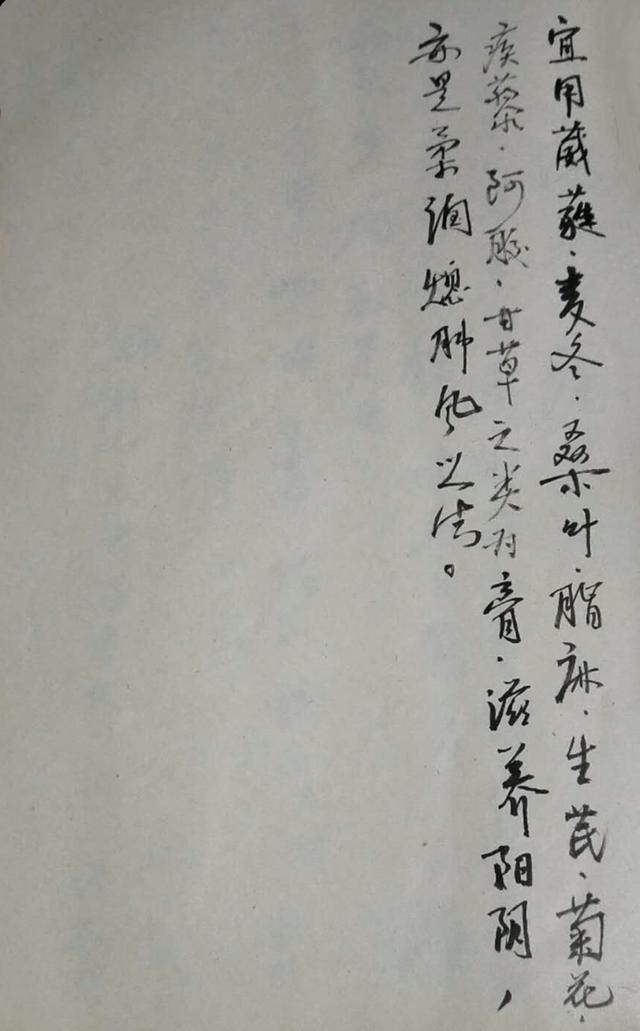 宜用葳蕤、麦冬、桑叶、脂麻、生芪、菊花、
疾藜、阿胶、甘草之类为膏、滋养阳阴，
亦是柔润熄肺风之法。